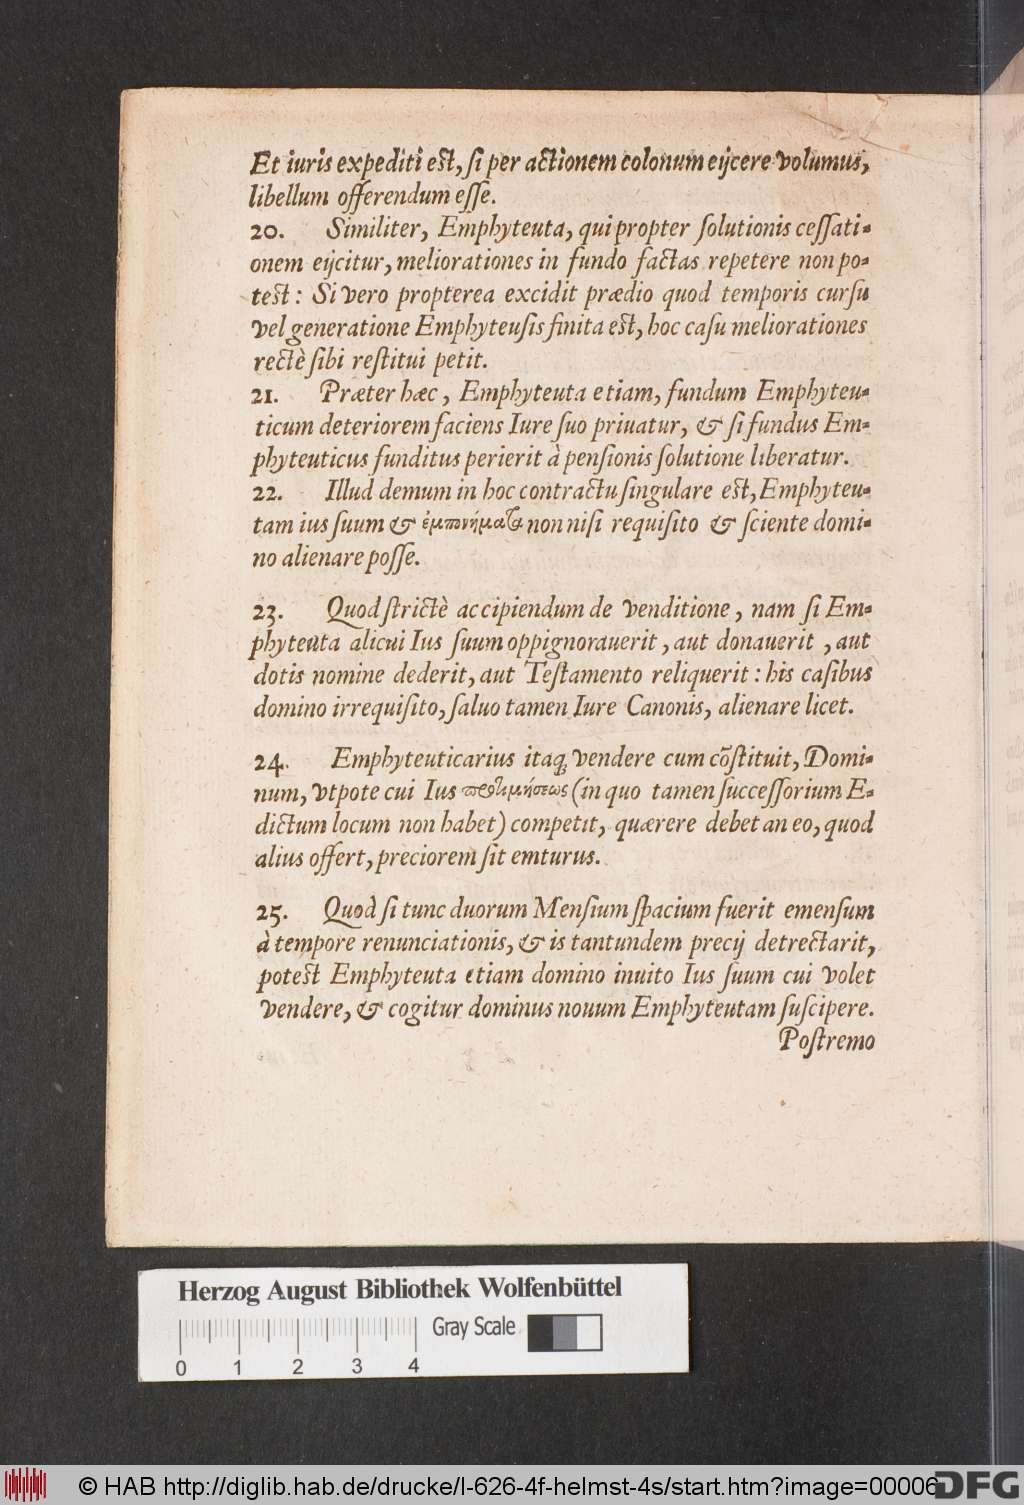 Et iuris expediti est, ſi per actionem colonum eijcere volumus,
libellum offerendum eſſe.
20. Similiter, Emphyteuta, qui propter ſolutionis ceſſati-
onem eijcitur, meliorationes in fundo factas repetere non po-
test: Si vero propterea excidit prædio quod temporis curſu
vel generatione Emphyteuſis finita est, hoc caſu meliorationes
rectè ſibi reſtitui petit.
21. Præter hæc, Emphyteuta etiam, fundum Emphyteu-
ticum deteriorem faciens Iure ſuo priuatur, & ſi fundus Em-
phyteuticus funditus perierit à penſionis ſolutione liberatur.
22. Illud demum in hoc contractu ſingulare est, Emphyteu-
tam ius ſuum & ἐμπονήματα non niſi requiſito & ſciente domi-
no alienare poſſe.
23. Quod ſtrictè accipiendum de venditione, nam ſi Em-
phyteuta alicui Ius ſuum oppignorauerit, aut donauerit, aut
dotis nomine dederit, aut Teſtamento reliquerit: his caſibus
domino irrequiſito, ſaluo tamen Iure Canonis, alienare licet.
24. Emphyteuticarius itaq; vendere cum cõſtituit, Domi-
num, vtpote cui Ius προτιμήσεως (in quo tamen ſucceſſorium E-
dictum locum non habet) competit, quærere debet an eo, quod
alius offert, preciorem ſit emturus.
25. Quod ſi tunc duorum Menſium ſpacium fuerit emenſum
à tempore renunciationis, & is tantundem precij detrectarit,
potest Emphyteuta etiam domino inuito Ius ſuum cui volet
vendere, & cogitur dominus nouum Emphyteutam ſuſcipere.
Poſtremo
Herzog August Bibliothek Wolfenbüttel
Gray Scale
0 1 2 3 4
© HAB http://diglib.hab.de/drucke/l-626-4f-helmst-4s/start.htm?image=00006
DFG